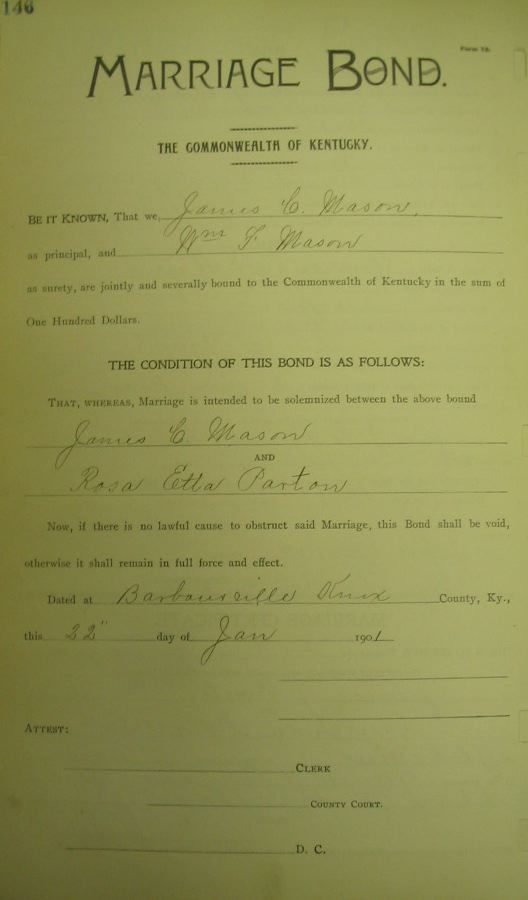 146
Form 12.
MARRIAGE BOND.
THE COMMONWEALTH OF KENTUCKY.
BE IT KNOWN, That we, James C. Mason,
as principal, and Wm F Mason
as surety, are jointly and severally bound to the Commonwealth of Kentucky in the sum of
One Hundred Dollars.
THE CONDITION OF THIS BOND IS AS FOLLOWS:
THAT, WHEREAS, Marriage is intended to be solemnized between the above bound
James C. Mason
AND
Rosa Etta Parton
Now, if there is no lawful cause to obstruct said Marriage, this Bond shall be void,
otherwise it shall remain in full force and effect.
Dated at Barbourville Knox County, Ky.,
this 22" day of Jan 1901
ATTEST:
CLERK
COUNTY COURT.
D. C.